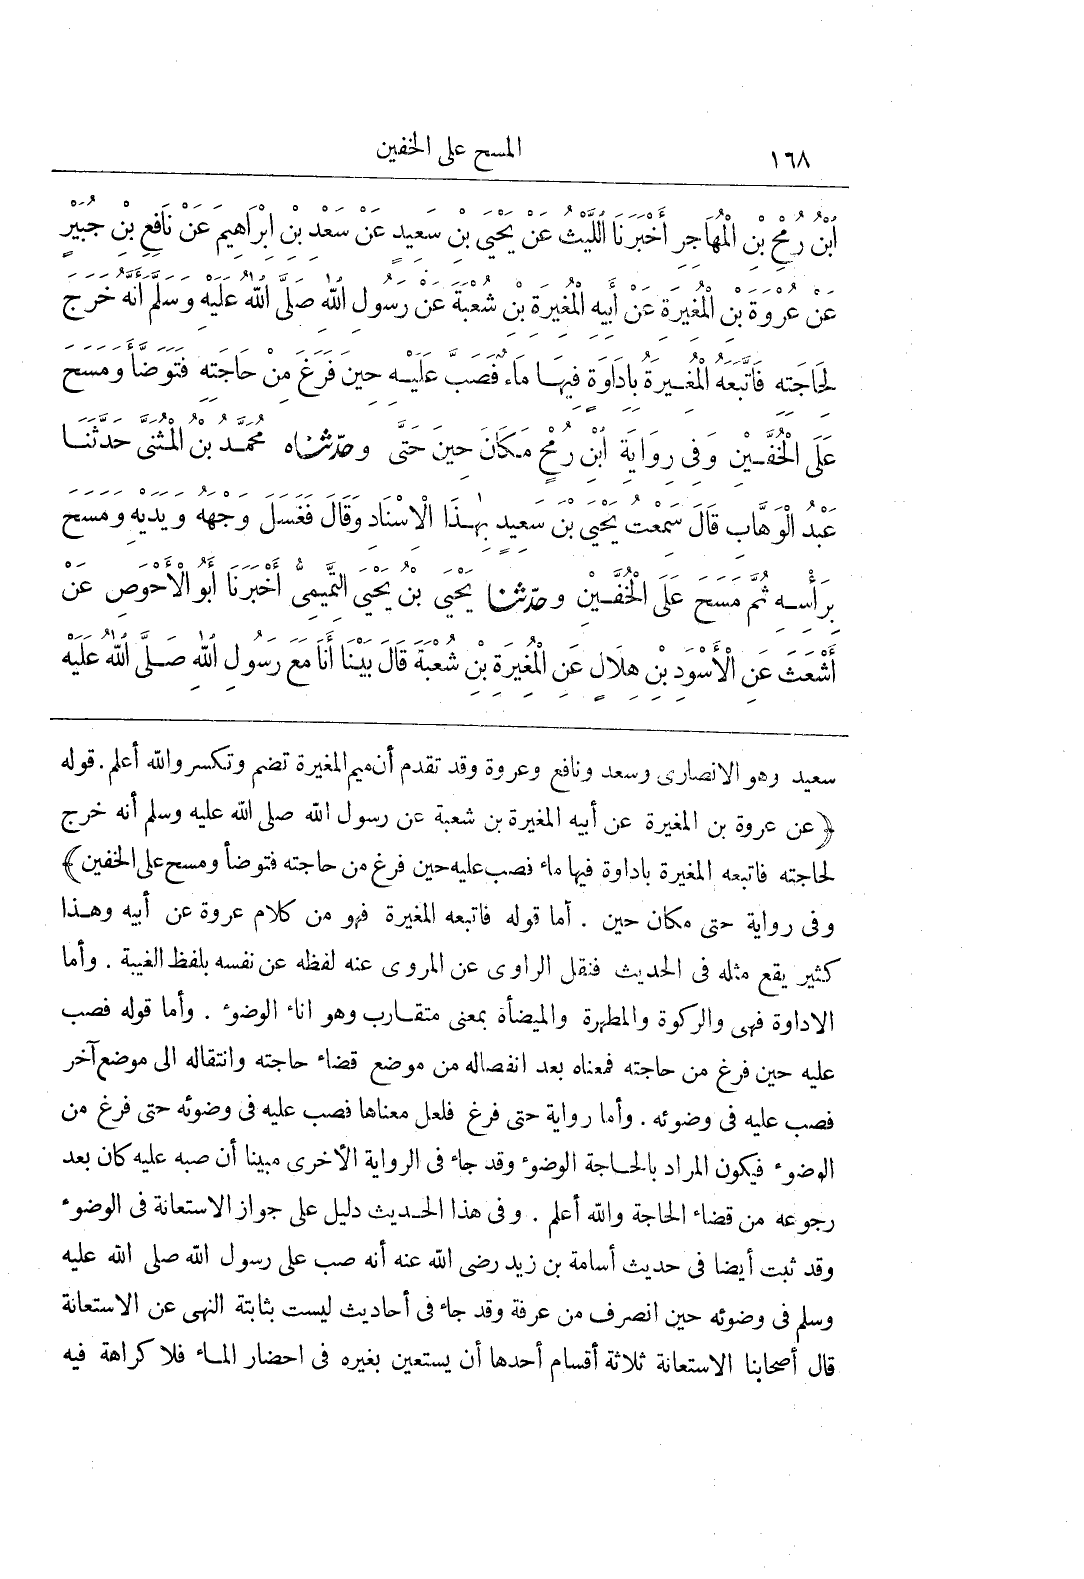 ١٦٨ المسح على الخفين
ابْنُ رُمْحِ بْنِ الْمُهَاجِرِ أَخْبَرَنَا اللَّيْثُ عَنْ يَحْيَى بْنِ سَعِيدٍ عَنْ سَعْدِ بْنِ إِبْرَاهِيمَ عَنْ نَافِعِ بْنِ جُبَيْرٍ
عَنْ عُرْوَةَ بْنِ الْمُغِيرَةِ عَنْ أَبِيهِ الْمُغِيرَةِ بْنِ شُعْبَةَ عَنْ رَسُولِ اللهِ صَلَّى اللهُ عَلَيْهِ وَسَلَّمَ أَنَّهُ خَرَجَ
لِحَاجَتِهِ فَاتَّبَعَهُ الْمُغِيرَةُ بِادَاوَةٍ فِيهَا مَاءٌ فَصَبَّ عَلَيْهِ حِينَ فَرَغَ مِنْ حَاجَتِهِ فَتَوَضَّأَ وَمَسَحَ
عَلَى الْخُفَّيْنِ وَفِى رِوَايَةِ ابْنِ رُمْحٍ مَكَانَ حِينَ حَتَّى وحدثناه مُحَمَّدُ بْنُ الْمُثَنَّى حَدَّثَنَا
عَبْدُ الْوَهَّابِ قَالَ سَمِعْتُ يَحْيَى بْنَ سَعِيدٍ بِهٰذَا الْاسْنَادِ وَقَالَ فَغَسَلَ وَجْهَهُ وَيَدَيْهِ وَمَسَحَ
بِرَأْسِهِ ثُمَّ مَسَحَ عَلَى الْخُفَّيْنِ وحدثنا يَحْيَى بْنُ يَحْيَى التَّمِيمِىُّ أَخْبَرَنَا أَبُو الْأَحْوَصِ عَنْ
أَشْعَثَ عَنِ الْأَسْوَدِ بْنِ هِلَالٍ عَنِ الْمُغِيرَةِ بْنِ شُعْبَةَ قَالَ بَيْنَا أَنَا مَعَ رَسُولِ اللهِ صَلَّى اللهُ عَلَيْهِ
سعيد وهو الانصارى وسعد ونافع وعروة وقد تقدم أن ميم المغيرة تضم وتكسر والله أعلم . قوله
﴿عن عروة بن المغيرة عن أبيه المغيرة بن شعبة عن رسول الله صلى الله عليه وسلم أنه خرج
لحاجته فاتبعه المغيرة باداوة فيها ماء فصب عليه حين فرغ من حاجته فتوضأ ومسح على الخفين﴾
وفى رواية حتى مكان حين . أما قوله فاتبعه المغيرة فهو من كلام عروة عن أبيه وهذا
كثير يقع مثله فى الحديث فنقل الراوى عن المروى عنه لفظه عن نفسه بلفظ الغيبة . وأما
الاداوة فهى والركوة والمطهرة والميضأة بمعنى متقارب وهو اناء الوضوء . وأما قوله فصب
عليه حين فرغ من حاجته فمعناه بعد انفصاله من موضع قضاء حاجته وانتقاله الى موضع آخر
فصب عليه فى وضوئه . وأما رواية حتى فرغ فلعل معناها فصب عليه فى وضوئه حتى فرغ من
الوضوء فيكون المراد بالحاجة الوضوء وقد جاء فى الرواية الأخرى مبينا أن صبه عليه كان بعد
رجوعه من قضاء الحاجة والله أعلم . وفى هذا الحديث دليل على جواز الاستعانة فى الوضوء
وقد ثبت أيضا فى حديث أسامة بن زيد رضى الله عنه أنه صب على رسول الله صلى الله عليه
وسلم فى وضوئه حين انصرف من عرفة وقد جاء فى أحاديث ليست بثابتة النهى عن الاستعانة
قال أصحابنا الاستعانة ثلاثة أقسام أحدها أن يستعين بغيره فى احضار الماء فلا كراهة فيه